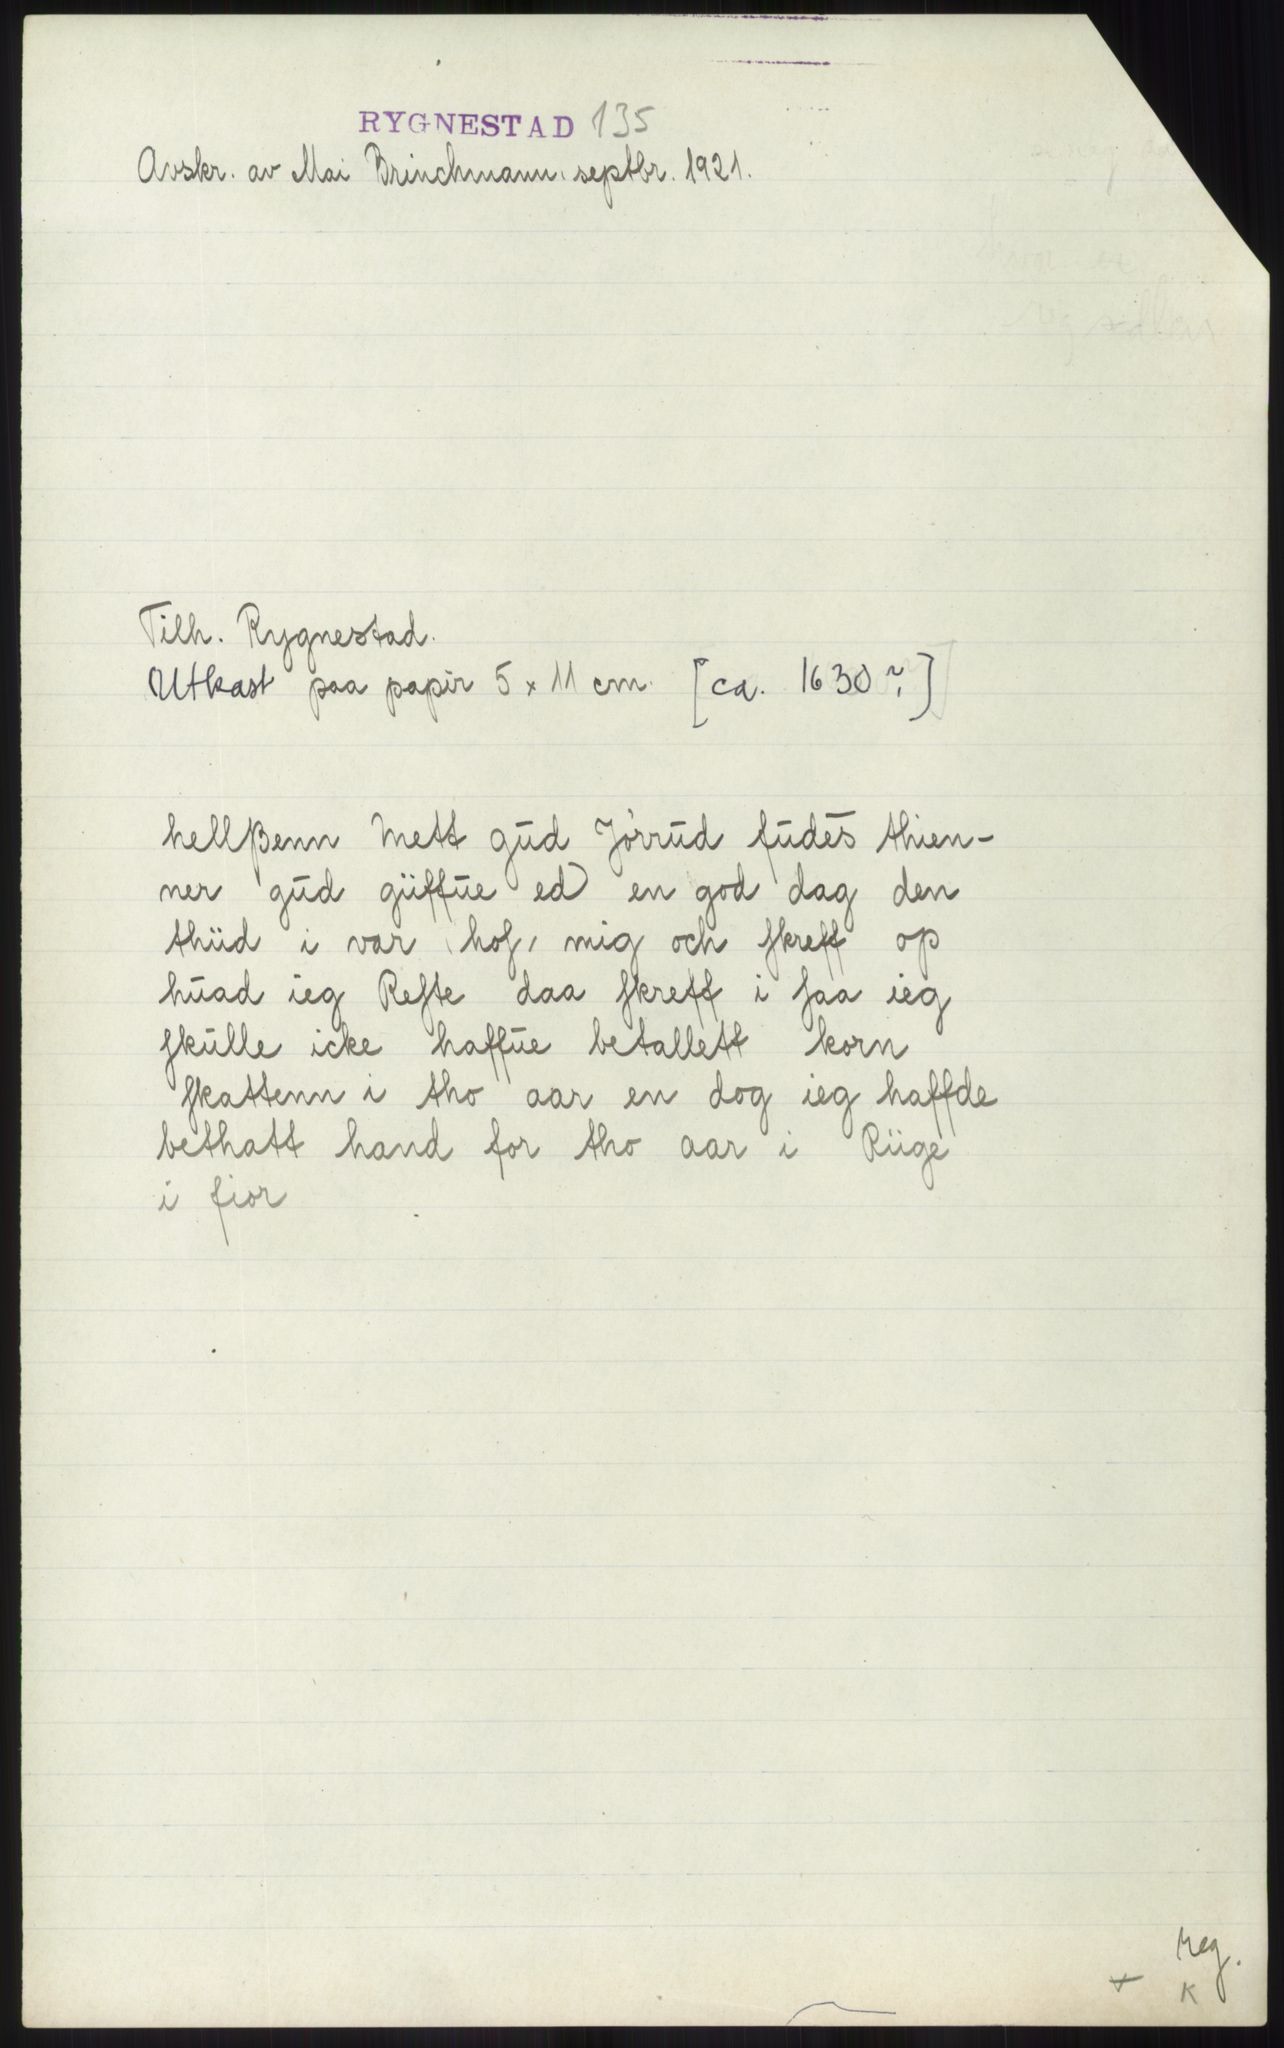 RYGNESTAD 135
Avskr. av Mai Brinchmann, septbr. 1921.
Tilh. Rygnestad.
Utkast paa papir 5 x 11 cm. [ca. 1630?]
hellßenn Mett gud Jörrud fudes thien-
ner gud güffue ed en god dag den
thüd i var hoſ mig och ſkreff op
huad ieg Reſte daa ſkreff i ſaa ieg
ſkulle icke haffue betallett korn
ſkattenn i tho aar en dog ieg haffde
bethatt hand for tho aar i Rüge
i fior
reg.
+ K